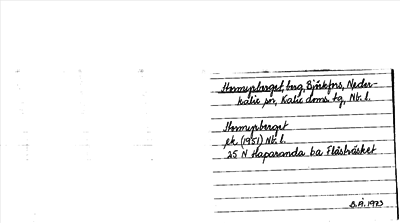 Hermyrberget, berg, Björkfors, Neder-
kalix sn, Kalix doms. tg, Nb. l.
Hermyrberget
ek. (1951) Nb. l.
25 N Haparanda ba Flåsträsket
B.Å. 1973